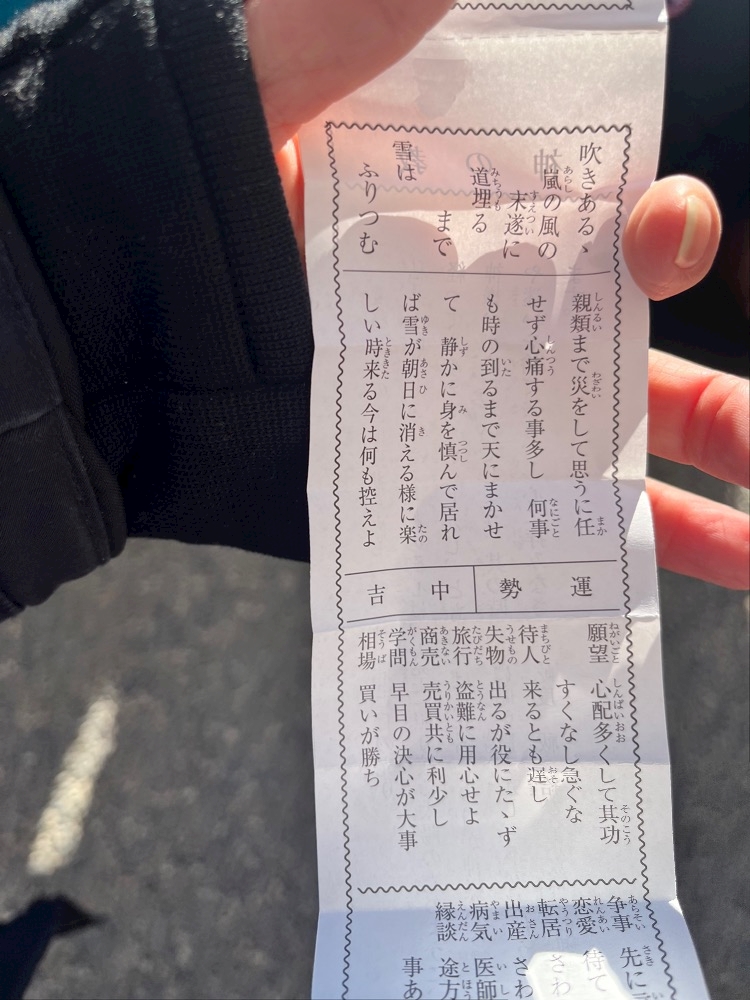 吹きあるゝ
嵐の風の
末遂に
道埋る
まで
雪は
ふりつむ
親類まで災をして思うに任
せず心痛する事多し 何事
も時の到るまで天にまかせ
て 静かに身を慎んで居れ
ば雪が朝日に消える様に楽
しい時来る今は何も控えよ
運勢 中吉
願望 心配多くして其功
すくなし急ぐな
待人 来るとも遅し
失物 出るが役にたゝず
旅行 盗難に用心せよ
商売 売買共に利少し
学問 早目の決心が大事
相場 買いが勝ち
争事 先に
恋愛 待て
転居 さわ
出産 さわ
病気 医師
縁談 途方
事あ